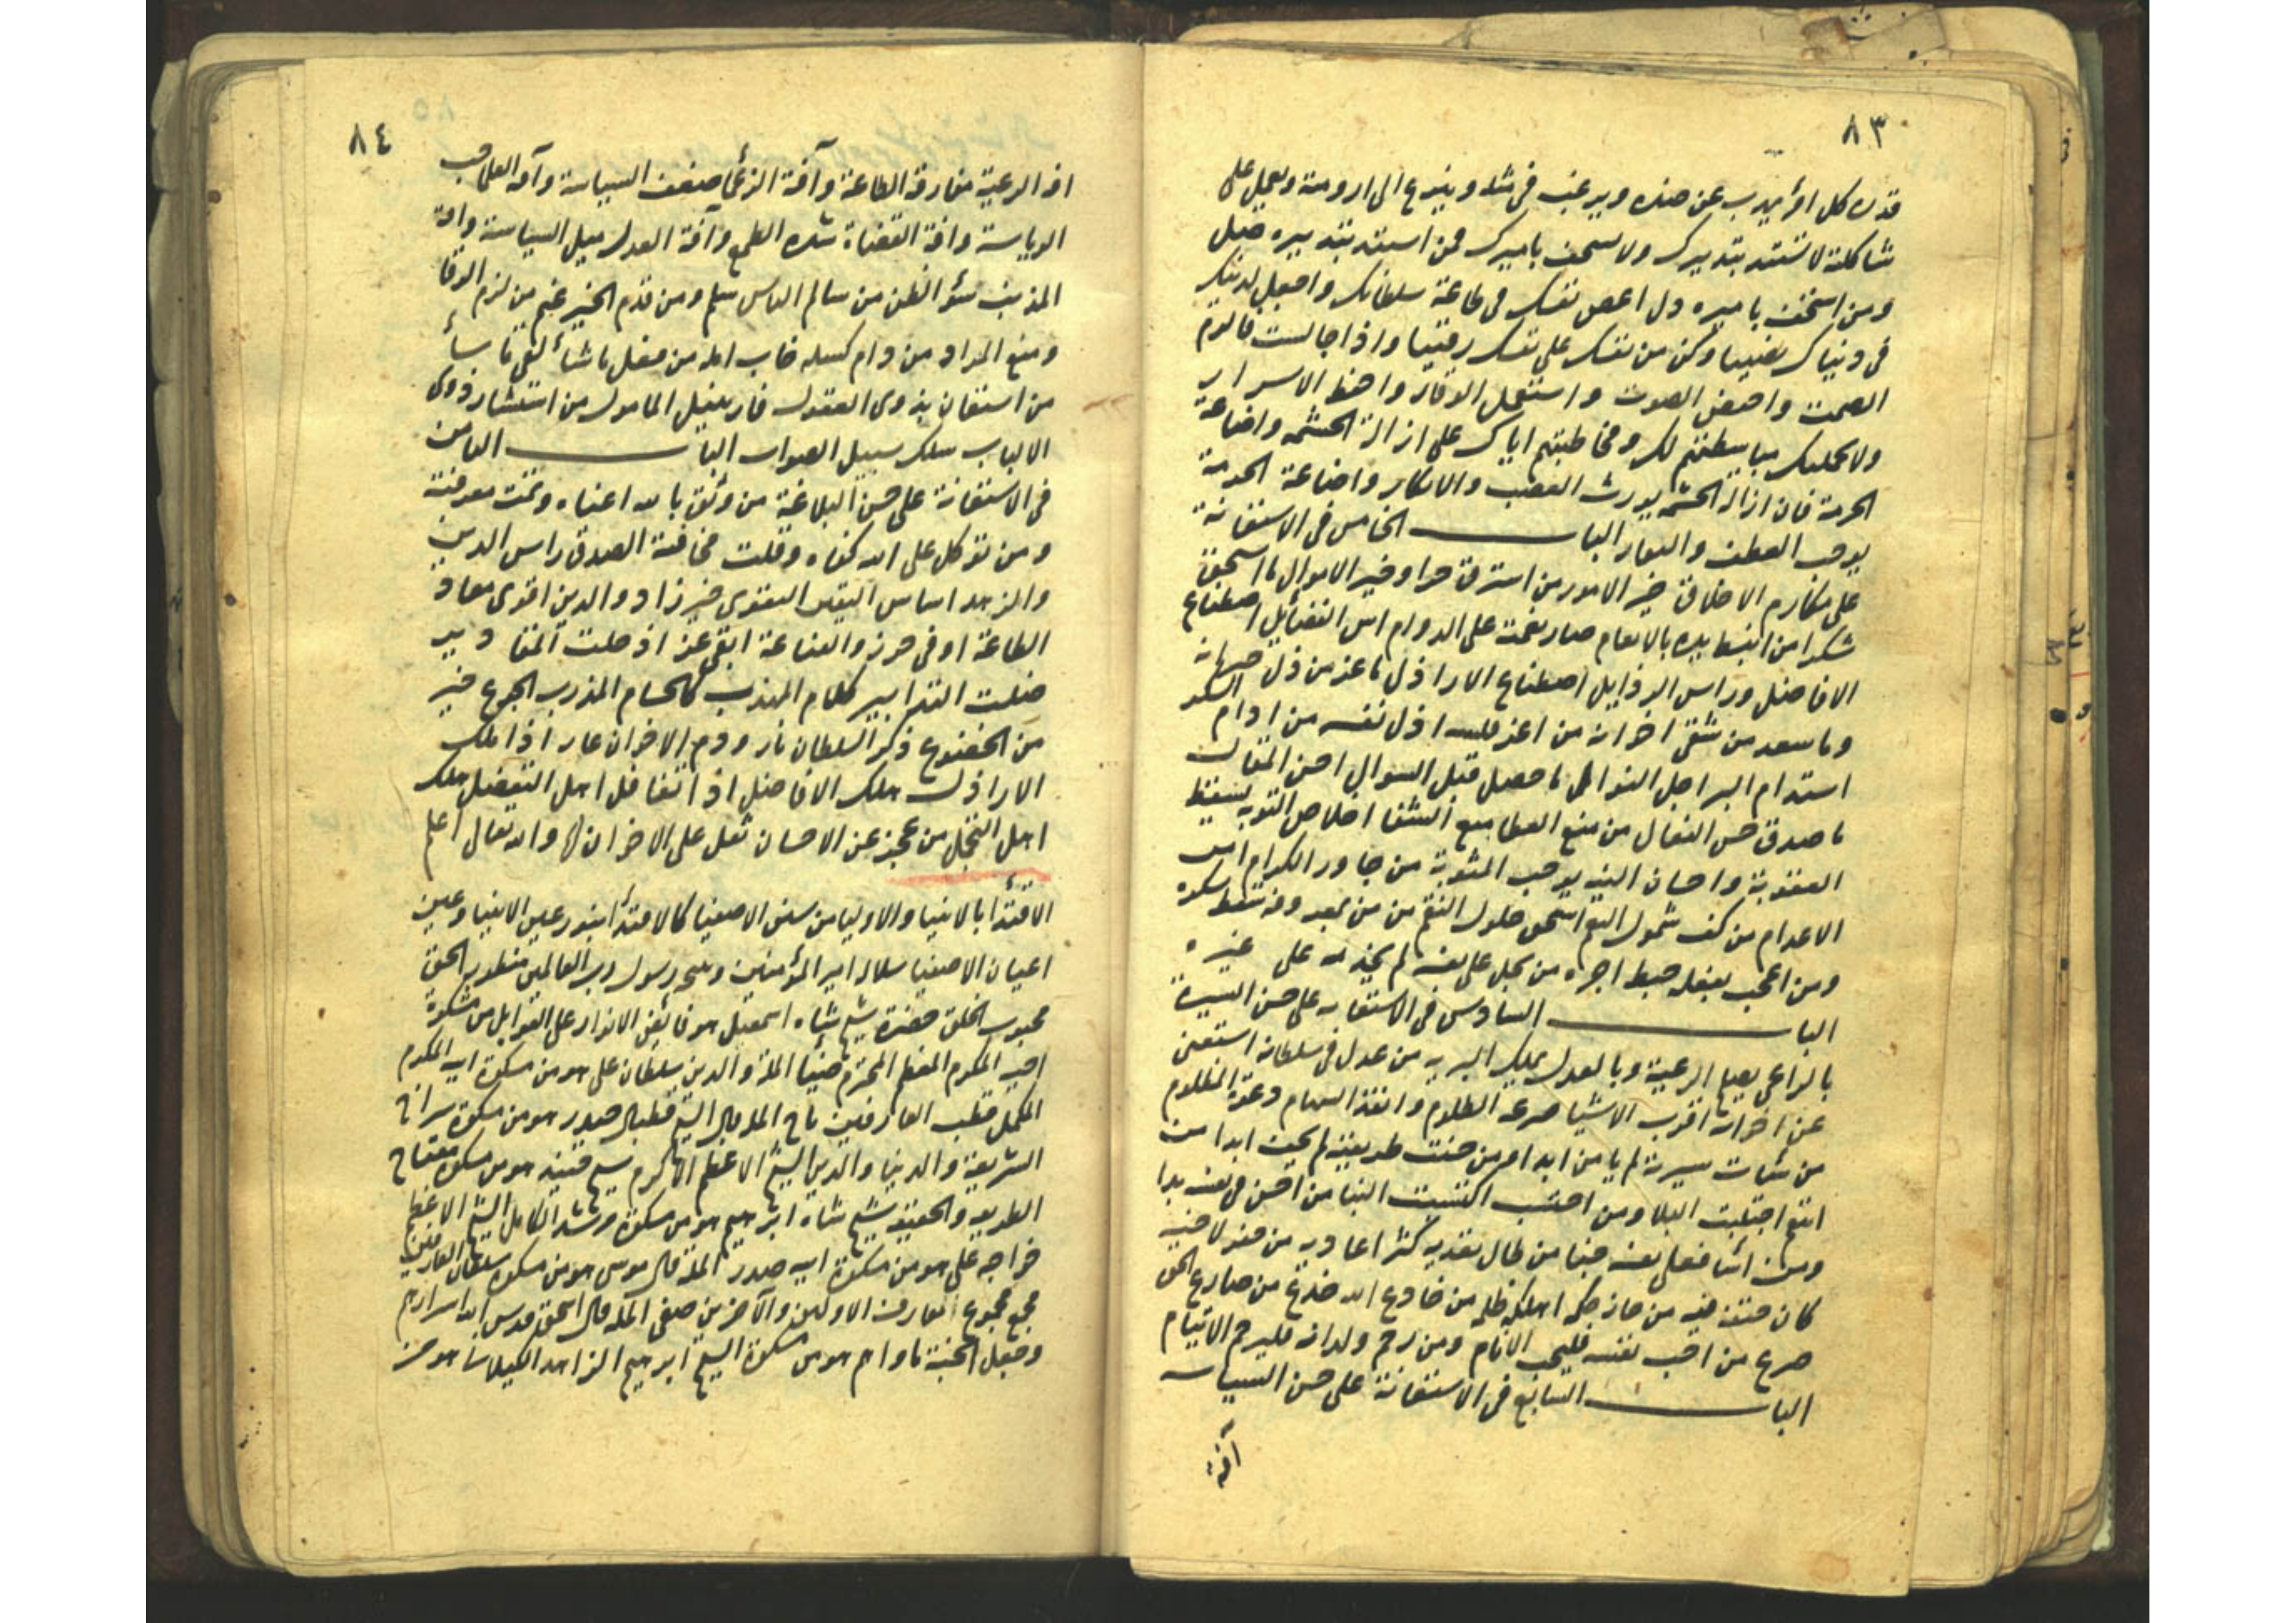 ٨٣
قدره كل امرأ يدرب عن ضده ويرغب فى مثله وينبوع الى ارومته ويعمل على
شاكلته لا تستبد بتدبيرك ولا تستخف باميرك فمن استبد بتدبيره ضل
ومن استخف باميره ذل اعص نفسك فى طاعة سلطانك واجعل لدينك
فى دنياك نصيبا وكن من نفسك على نفسك رقيبا واذا جالست فالزم
الصمت واخفض الصوت واستعمل الوقار واحفظ الاسرار
ولا يحملنك مباسطتهم لك ومخاطبتهم اياك على ازالة الحشمه واضاعة
الحرمة فان ازالة الحشمه يورث الغضب والانكار واضاعة الحرمة
يوجب العطف والبعار الباب الخامس فى الاستعانة
على مكارم الاخلاق خير الامور من استرق حرا وخير الاموال ما استحق
شكرا من انبسط يده بالانعام صار نعمته على الدوام اس الفضايل اصطناع
الافاضل وراس الرذايل اصطناع الاراذل ما عز من ذل جيرانه
وما سعد من شقى اخوانه من اعز فلسه اذل نفسه من ادام الشكر
استدام البر اجل النوال ما حصل قبل السوال احسن المقال
ما صدق حسن الفعال من منع العطا منع الثنا اخلاص التوبه يسقط
العقوبة واحسان النيه يوجب المثوبة من جاور الكرام امن
الاعدام من كفر شمول النعم استحق حلول النقم من من بمعروفه سقط شكره
ومن اعجب بفعله حبط اجره من بخل على نفسه لم يجد به على غيره
الباب السادس فى الاستعانه على حسن السيرة
بالراعى يصلح الرعية وبالعدل يملك البريه من عدل فى سلطانه استغنى
عن اخوانه اقرب الاشيا صرعه الظلوم وانفذ السهام دعوة المظلوم
من ساءت سيرته لم يامن ابدا ومن حسنت طريقته لم يخف ابدا من
انتع اجتلبت البلا ومن احسن اكتسبت الثنا من احسن فى نفسه بدا
ومن اسا فعلى نفسه جنا من طال تعديه كثر اعاديه من حفر لاخيه
كان حتفه فيه من جار حكمه اهلكه ظلمه من خادع الله خدع من صارع الحق
صرع من احب نفسه فليجب الانام ومن رحم ولدانه فليرحم الايتام
الباب السابع فى الاستعانة على حسن السياسه
آفة
٨٤
افة الرعية مفارقة الطاعة وآفة الزعما ضعف السياسة وآفه العلما حب
الرياسة وافة القضاة شده الطمع وآفة العدل ميل السياسة وافة
المذنب سؤ الظن من سالم الناس سلم ومن قدم الخير غنم من لزم الوفا
ومنع المراد من دام كسله خاب امله من فعل ما شأ لقى ما سأ
من استعان بذوى العقول فاز بنيل المامول من استشار ذوى
الالباب سلك سبيل الصواب الباب الثامن
فى الاستعانة على حسن البلاغة من وثق بالله اغناه وتمت معرفته
ومن توكل على الله كفاه وقلت مخافته الصدق راس الدين
والزهد اساس اليقين التقوى خير زاد والدين اقوى معاد
الطاعة اوفى حرز والقناعة ابقى عز اذ حلت المقادير
ضلت التدابير كلام المهذب كالحسام المذرب الجوع خير
من الخضوع ذكر السلطان نار وذم الاخوان عار اذا ملك
الاراذل هلك الافاضل اذا تغافل اهل التفضل هلك
اهل التجمل من عجز عن الاحسان ثقل على الاخوان والله تعالى اعلم
الاقتدأ بالانبيا والاوليا من سنن الاصفيا كالاقتدأ بنور عين الانبيا وعين
اعيان الاصفيا سلاله امير المؤمنين ونجل رسول رب العالمين منظور الحق
محبوب الخلق حضرة شيخ شاه اسمعيل هو فايض الانوار على القوابل من مشكوة
اخيه المكرم المعظم المحترم ضيا الملة والدين سلطان على هو من مشكوة ابيه المكرم
المكمل قطب العارفين تاج المله وال الشيخ حيدر هو من مشكوة سراج
الشريعة والدنيا والدين الشيخ الاعظم الاكرم شيخ جنيد هو من مشكوة مفتاح
الطريقه والحقيقه شيخ شاه ابرهيم هو من مشكوة مرشد الكامل الشيخ الاعظم
خواجه على هو من مشكوة ابيه صدر المله وال موسى هو من مشكوة سلطان العارفين
مجمع مجموع العارف الاولين والآخرين صفى المله وال اسحق قدس الله اسرارهم
وجعل الجنة ماواهم هو من مشكوة الشيخ ابرهيم الزاهد الكيلانى هو من